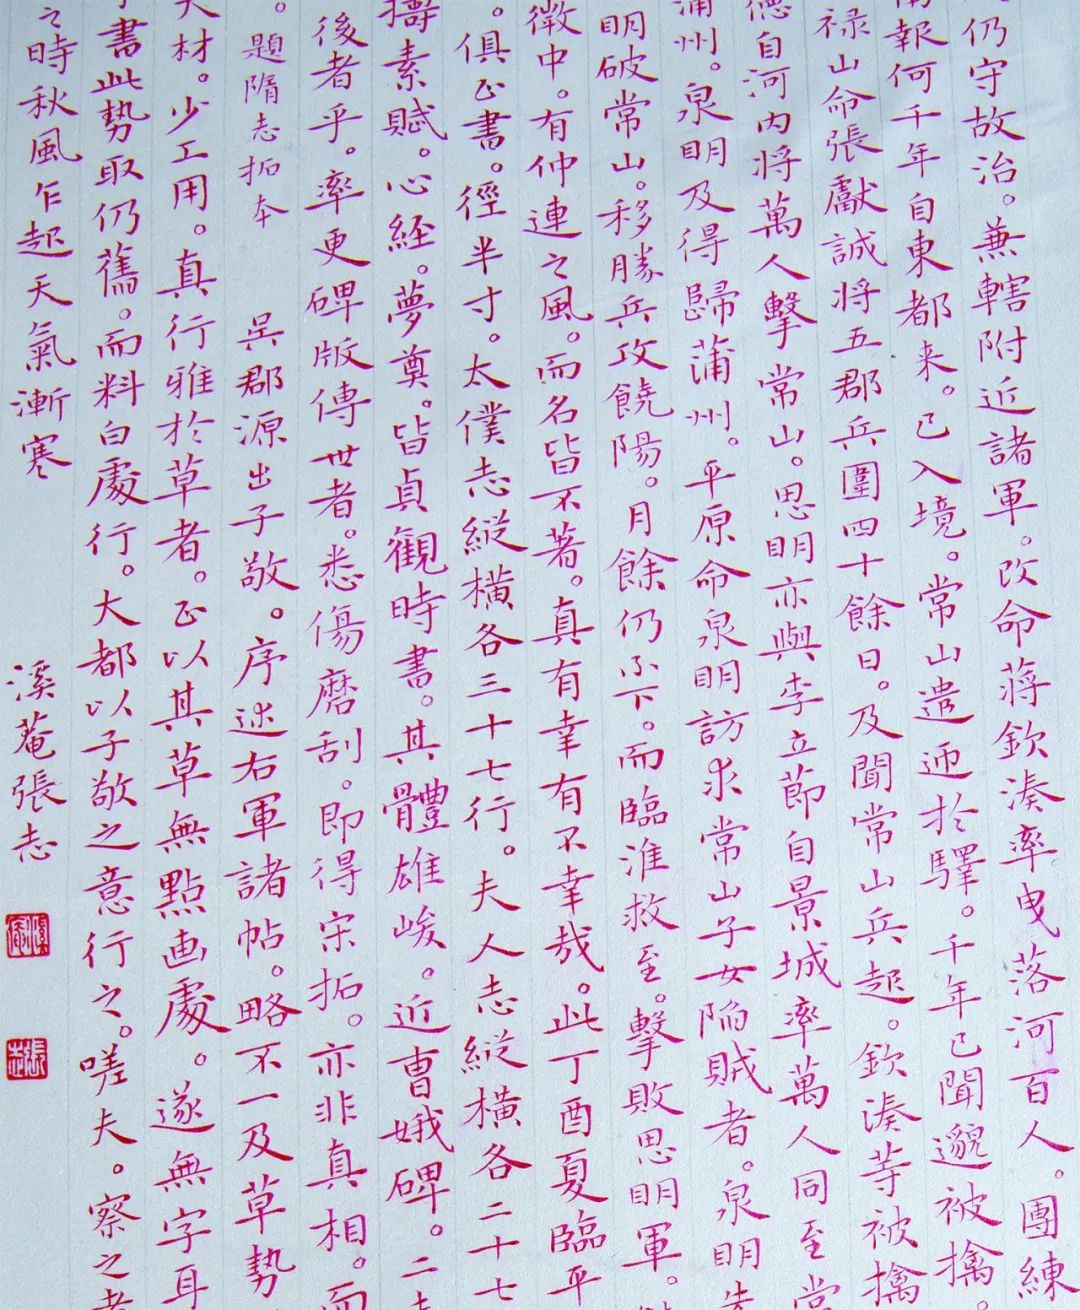 仍守故治。兼轄附近諸軍。改命蔣欽湊率曳落河百人。團練
報何千年自東都来。已入境。常山遣迊於驛。千年已聞邈被擒。
禄山命張獻誠将五郡兵圍四十餘日。及聞常山兵起。欽湊等被擒
德自河内将萬人擊常山。思明亦與李立節自景城率萬人同至常
蒲州。泉明及得歸蒲州。平原命泉明訪求常山子女陥賊者。泉明先
明破常山。移勝兵攻饒陽。月餘仍不下。而臨淮救至。擊敗思明軍。
徵中。有仲連之風。而名皆不著。真有幸有不幸哉。此丁酉夏臨平
。俱正書。徑半寸。太僕志縦横各三十七行。夫人志縦横各二十七
擣素賦。心経。夢奠。皆貞觀時書。其體雄峻。近曹娥碑。二志
後者乎。率更碑版傳世者。悉傷磨刮。即得宋拓。亦非真相。而
。題隋志拓本 吴郡源出子敬。序述右軍諸帖。略不一及草勢
大材。少工用。真行雅於草者。正以其草無點画處。遂無字耳
書此勢取仍舊。而料白處行。大都以子敬之意行之。嗟夫。察之者
之時秋風乍起天氣漸寒 溪菴張志